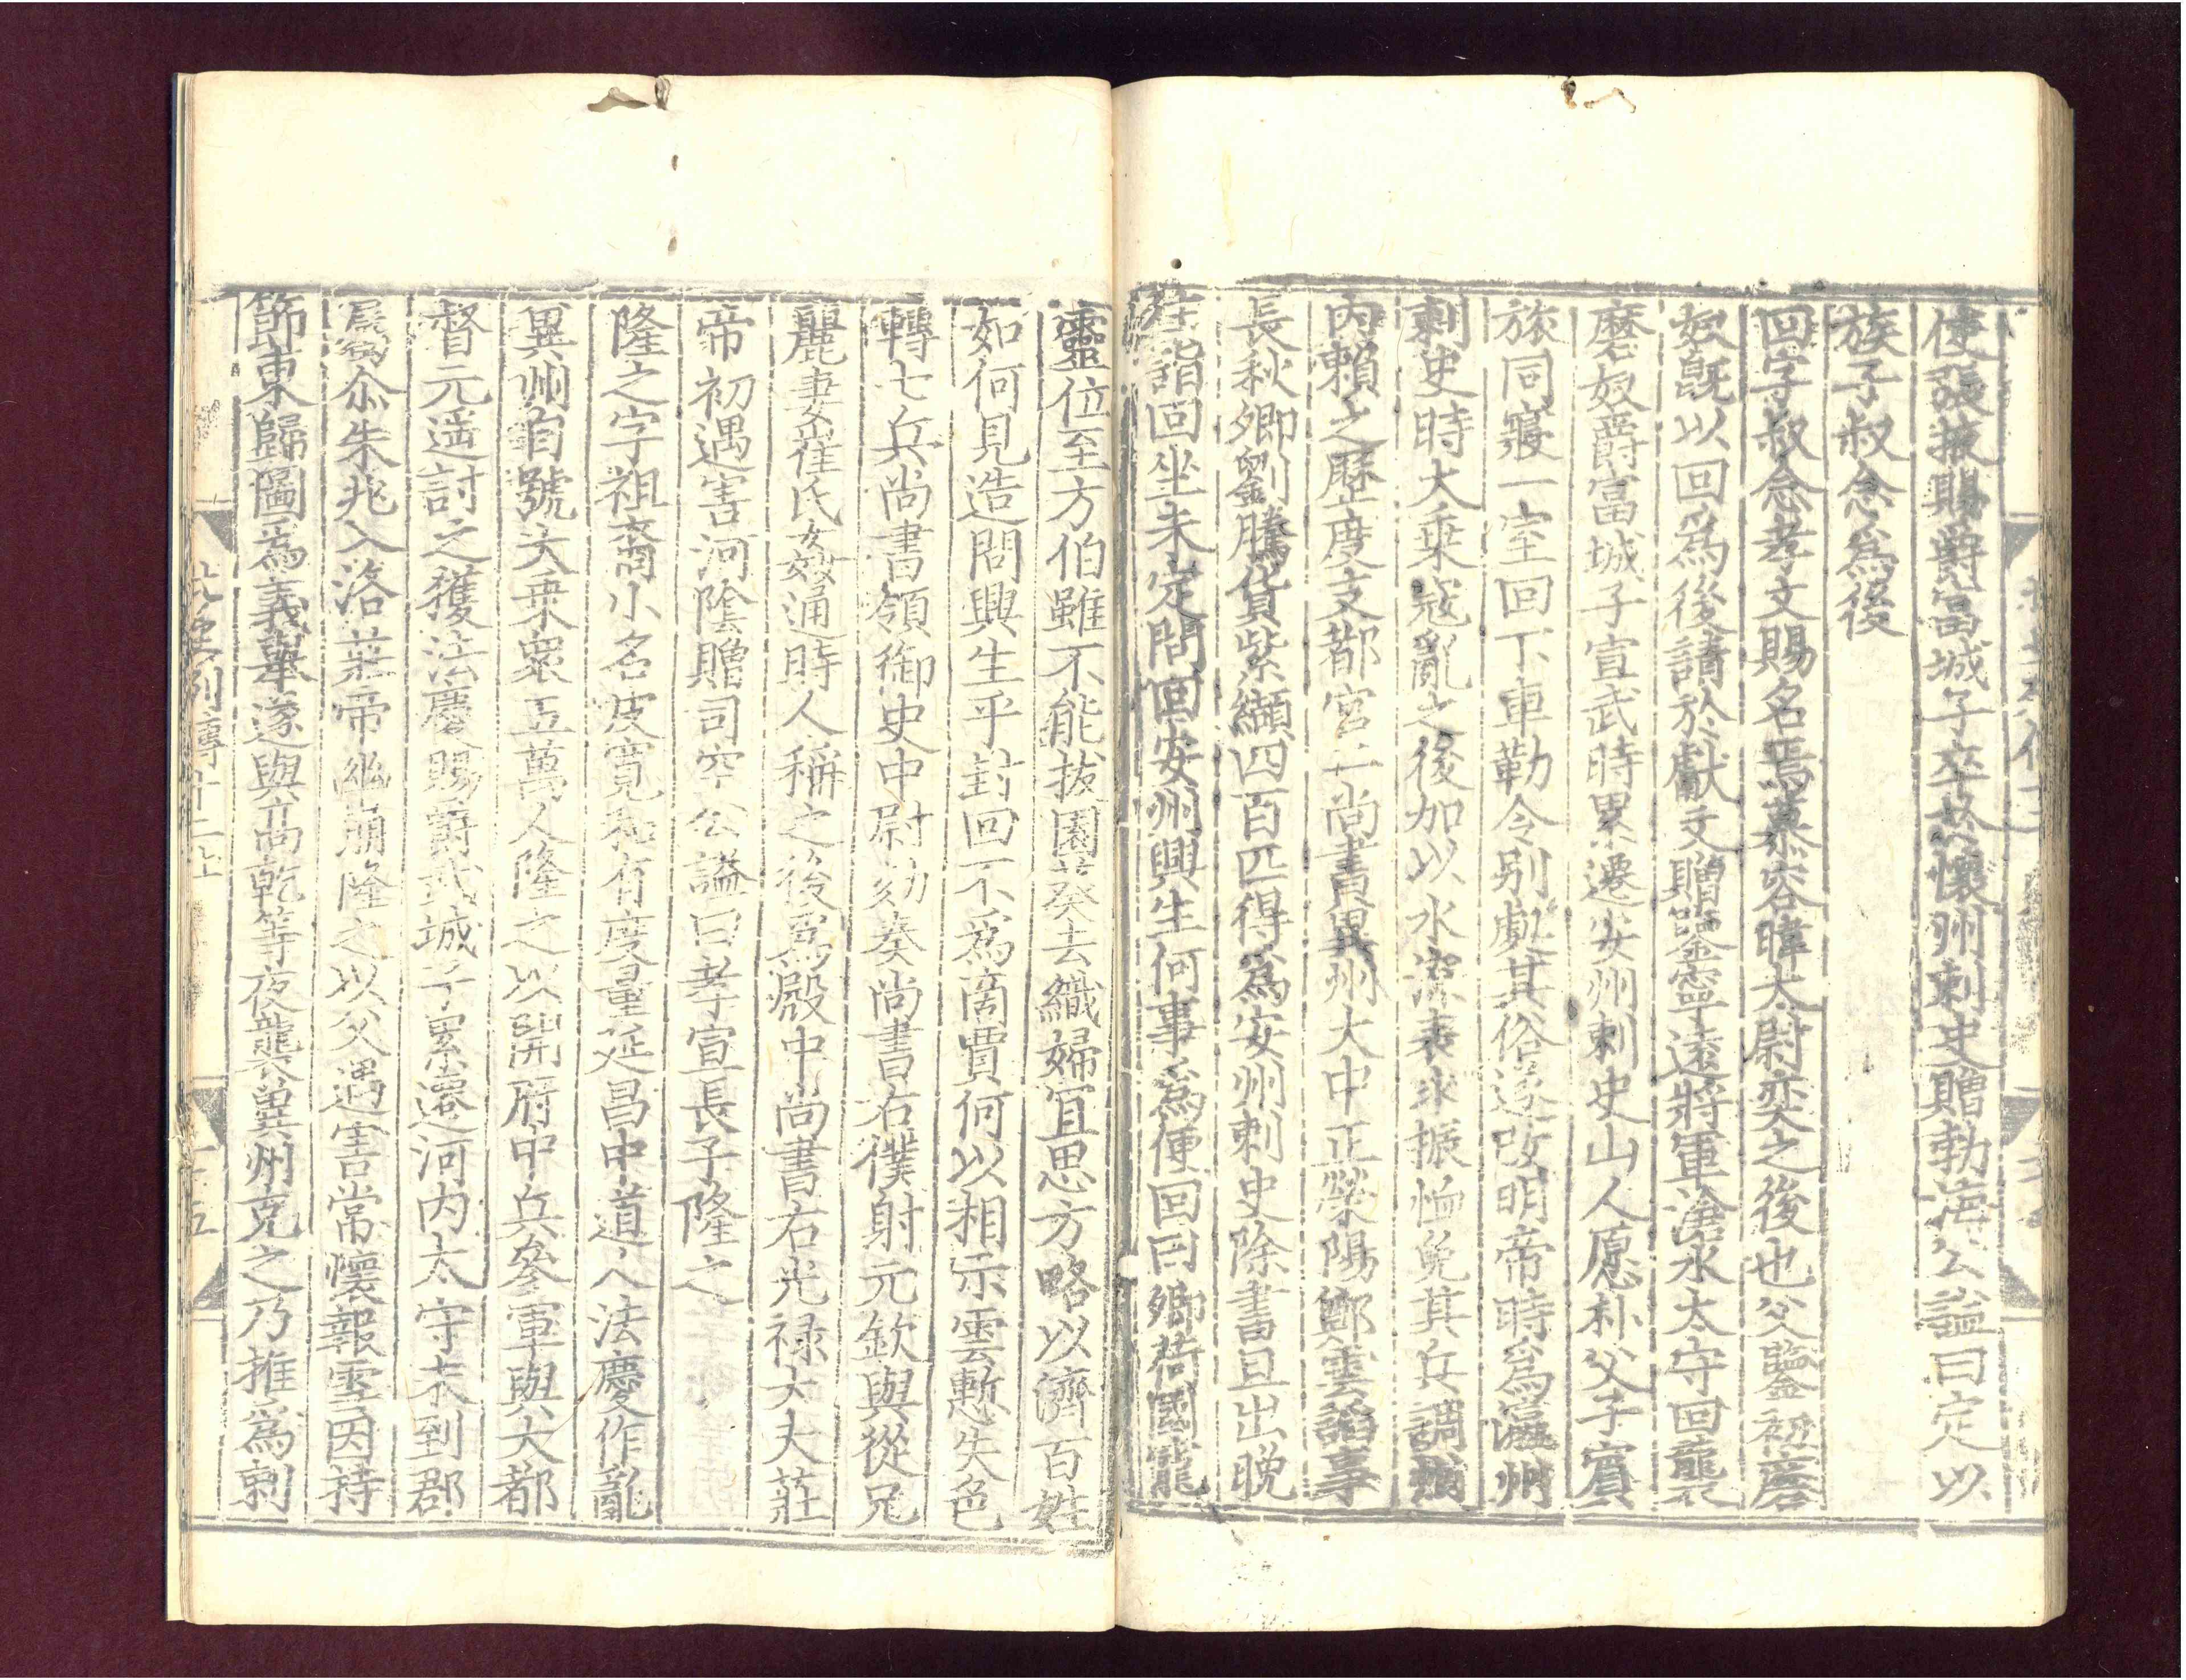 使張掖賜爵富城子卒於懷州刺史贈勃海公謚曰定以
族子叔念爲後
回字叔念孝文賜名焉慕容暐太尉奕之後也父鑒初磨
奴旣以回爲後請於獻文贈鑒寧遠將軍滄水太守回襲
磨奴爵富城子宣武時累遷安州刺史山人愿朴父子賓
旅同寢一室回下車勒令別處其俗遂改明帝時爲瀛州
刺史時大乗寇亂之後加以水潦表求振恤免其兵調州
內賴之歷度支都官二尚書冀州大中正滎陽鄭雲謟事
長秋卿劉騰貨紫纈四百匹得爲安州刺史除書旦出晚
往詣回坐未定問回安州興生何事爲便回曰卿荷國寵
靈位至方伯雖不能拔園葵去織婦宜思方略以濟百姓
如何見造問興生乎封回不爲商賈何以相示雲慙失色
轉七兵尚書領御史中尉劾奏尚書右僕射元欽與從兄
麗妻崔氏姦通時人稱之後爲殿中尚書右光祿大夫莊
帝初遇害河陰贈司空公謚曰孝宣長子隆之
隆之字祖裔小名皮寛和有度量延昌中道人法慶作亂
冀州自號大乗衆五萬人隆之以開府中兵參軍與大都
督元遥討之獲法慶賜爵武城子累遷河內太守未到郡
屬尒朱兆入洛莊帝幽崩隆之以父遇害常懷報雪因持
節東歸圖爲義舉遂與高乾等夜襲冀州克之乃推爲刺
北史列傳十二上
二十五